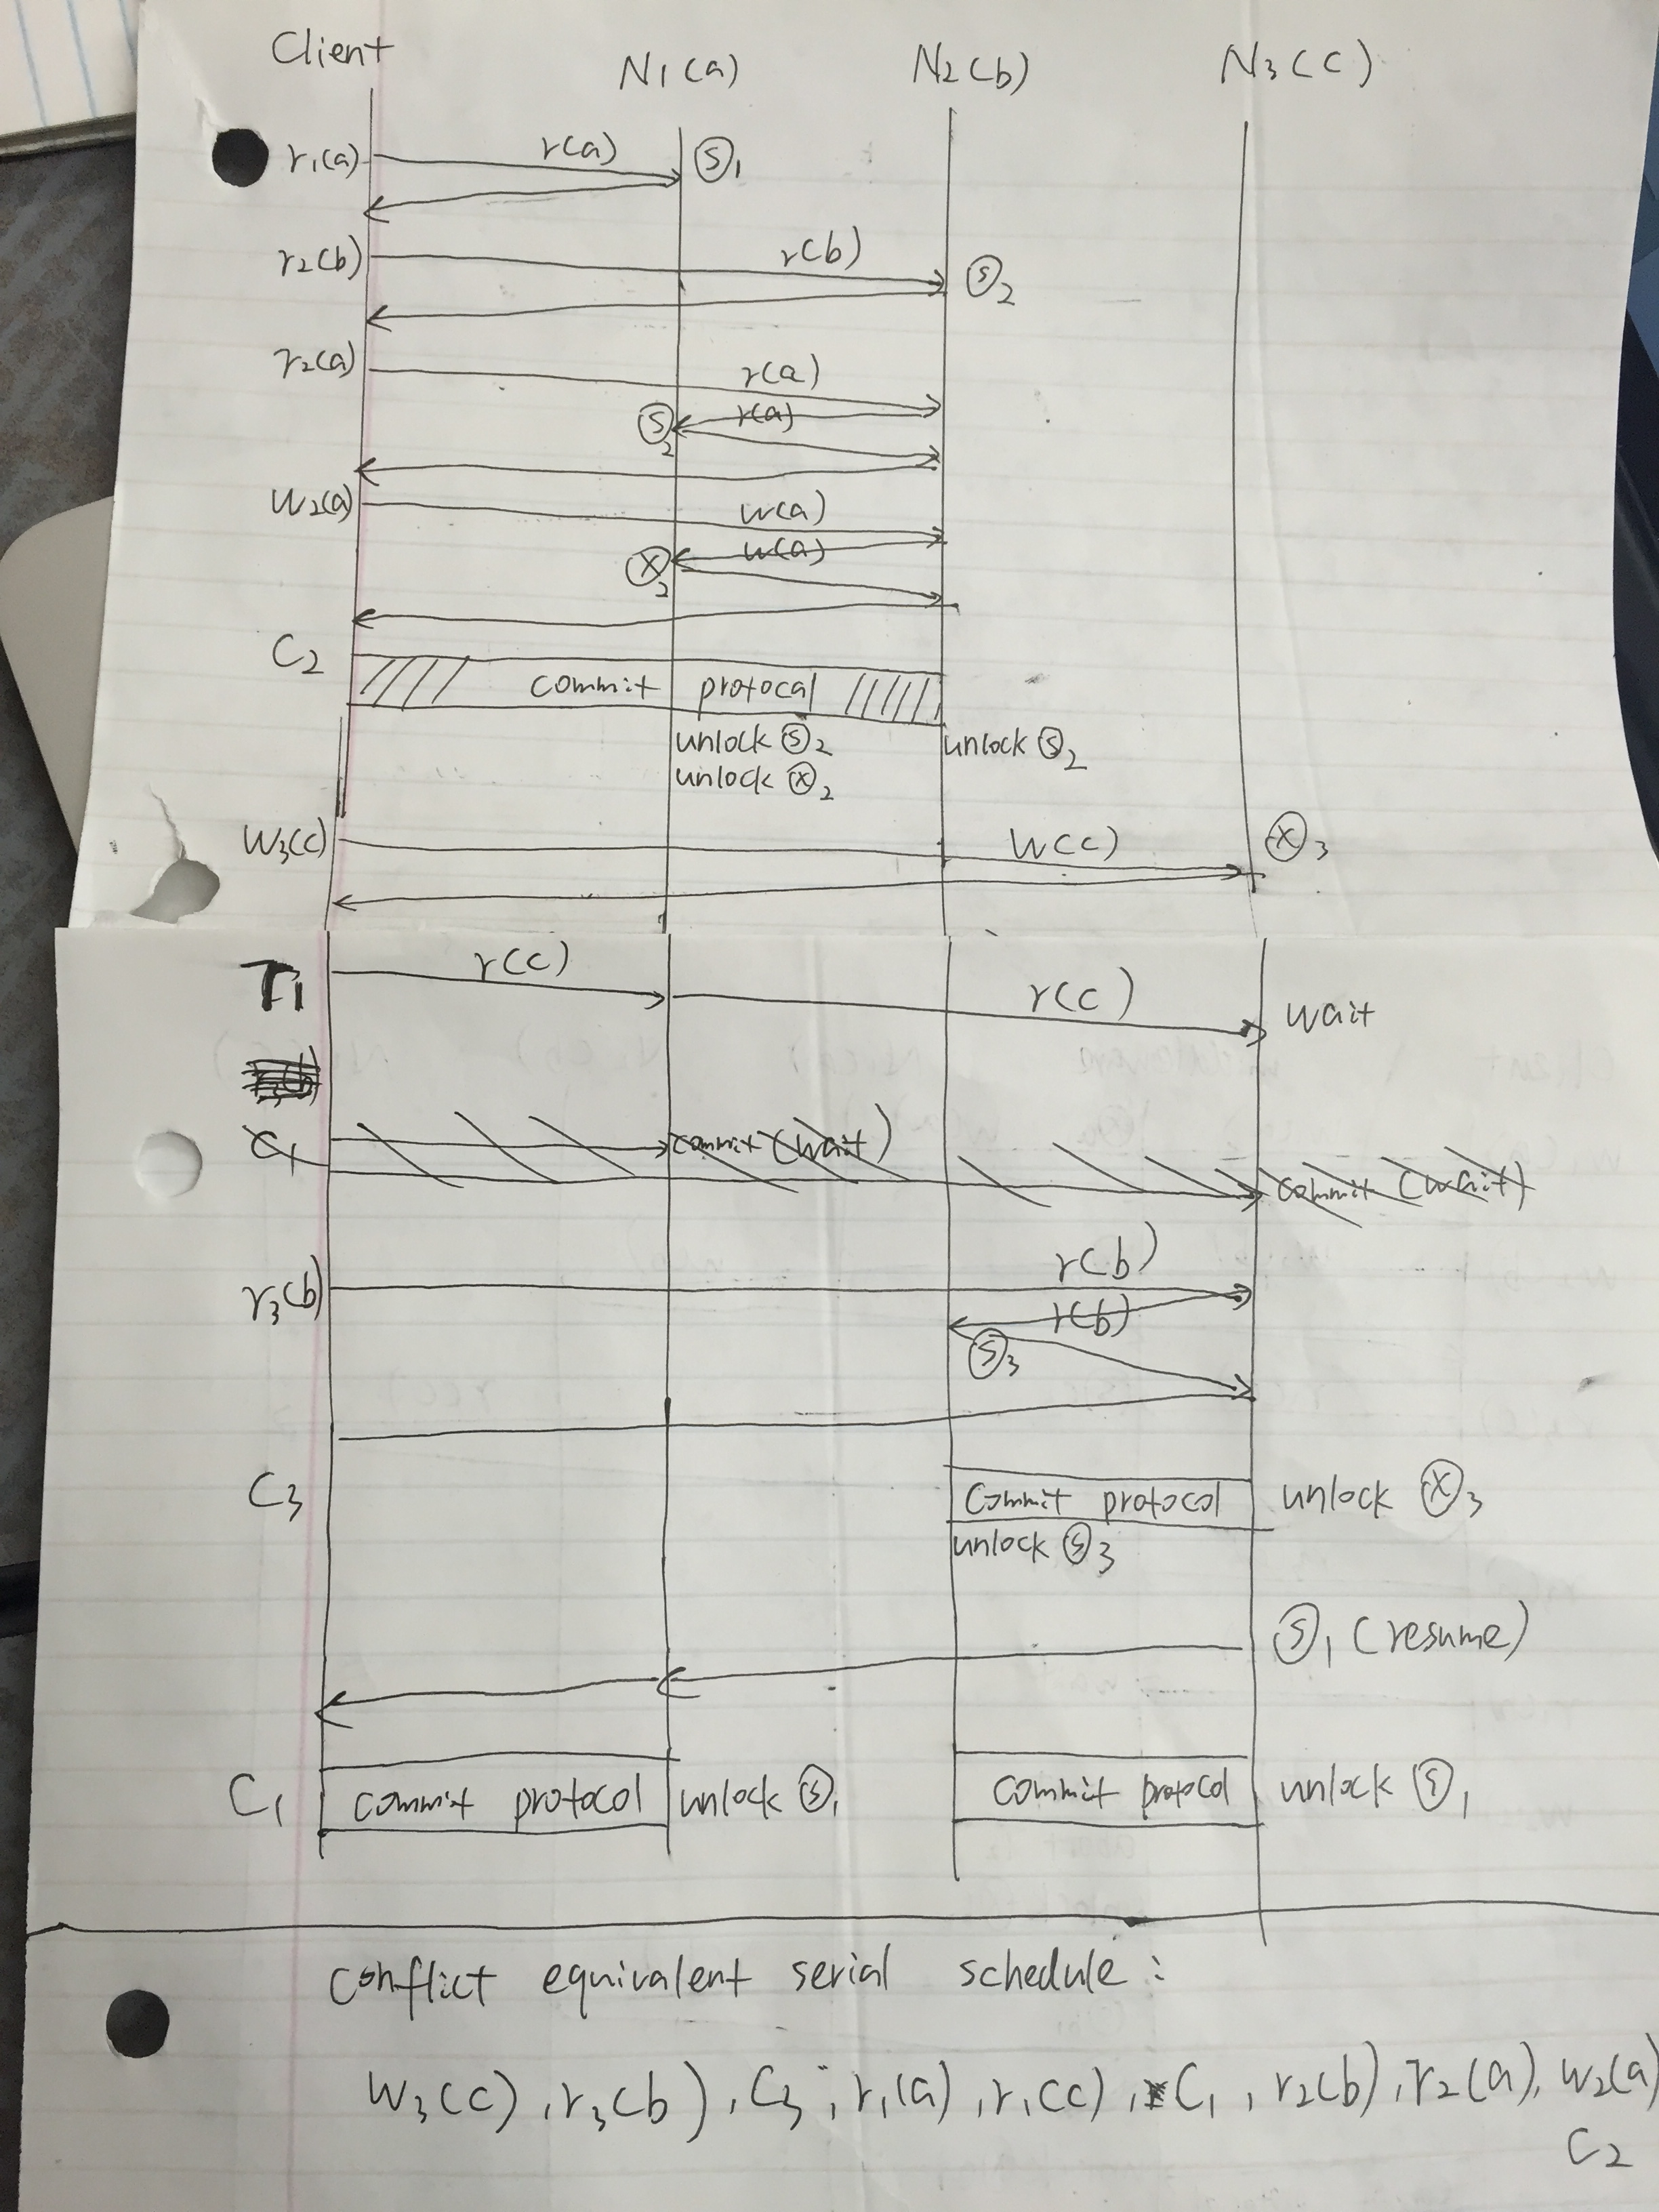 Client N1(a) N2(b) N3(c)
r1(a) r(a) Ⓢ1
r2(b) r(b) Ⓢ2
r2(a) r(a)
Ⓢ2 r(a)
W2(a) W(a)
Ⓧ2 W(a)
C2 commit protocal
unlock Ⓢ2 unlock Ⓢ2
unlock Ⓧ2
W3(c) W(c) Ⓧ3
T1 r(c) r(c) wait
C1 commit (wait) commit (wait)
r3(b) r(b)
r(b)
Ⓢ3
C3 Commit protocol unlock Ⓧ3
unlock Ⓢ3
Ⓢ1 (resume)
C1 Commit protocol unlock Ⓢ1 Commit protocol unlock Ⓢ1
Conflict equivalent serial schedule :
W3(c), r3(b), C3, r1(a), r1(c), C1, r2(b), r2(a), W2(a)
C2